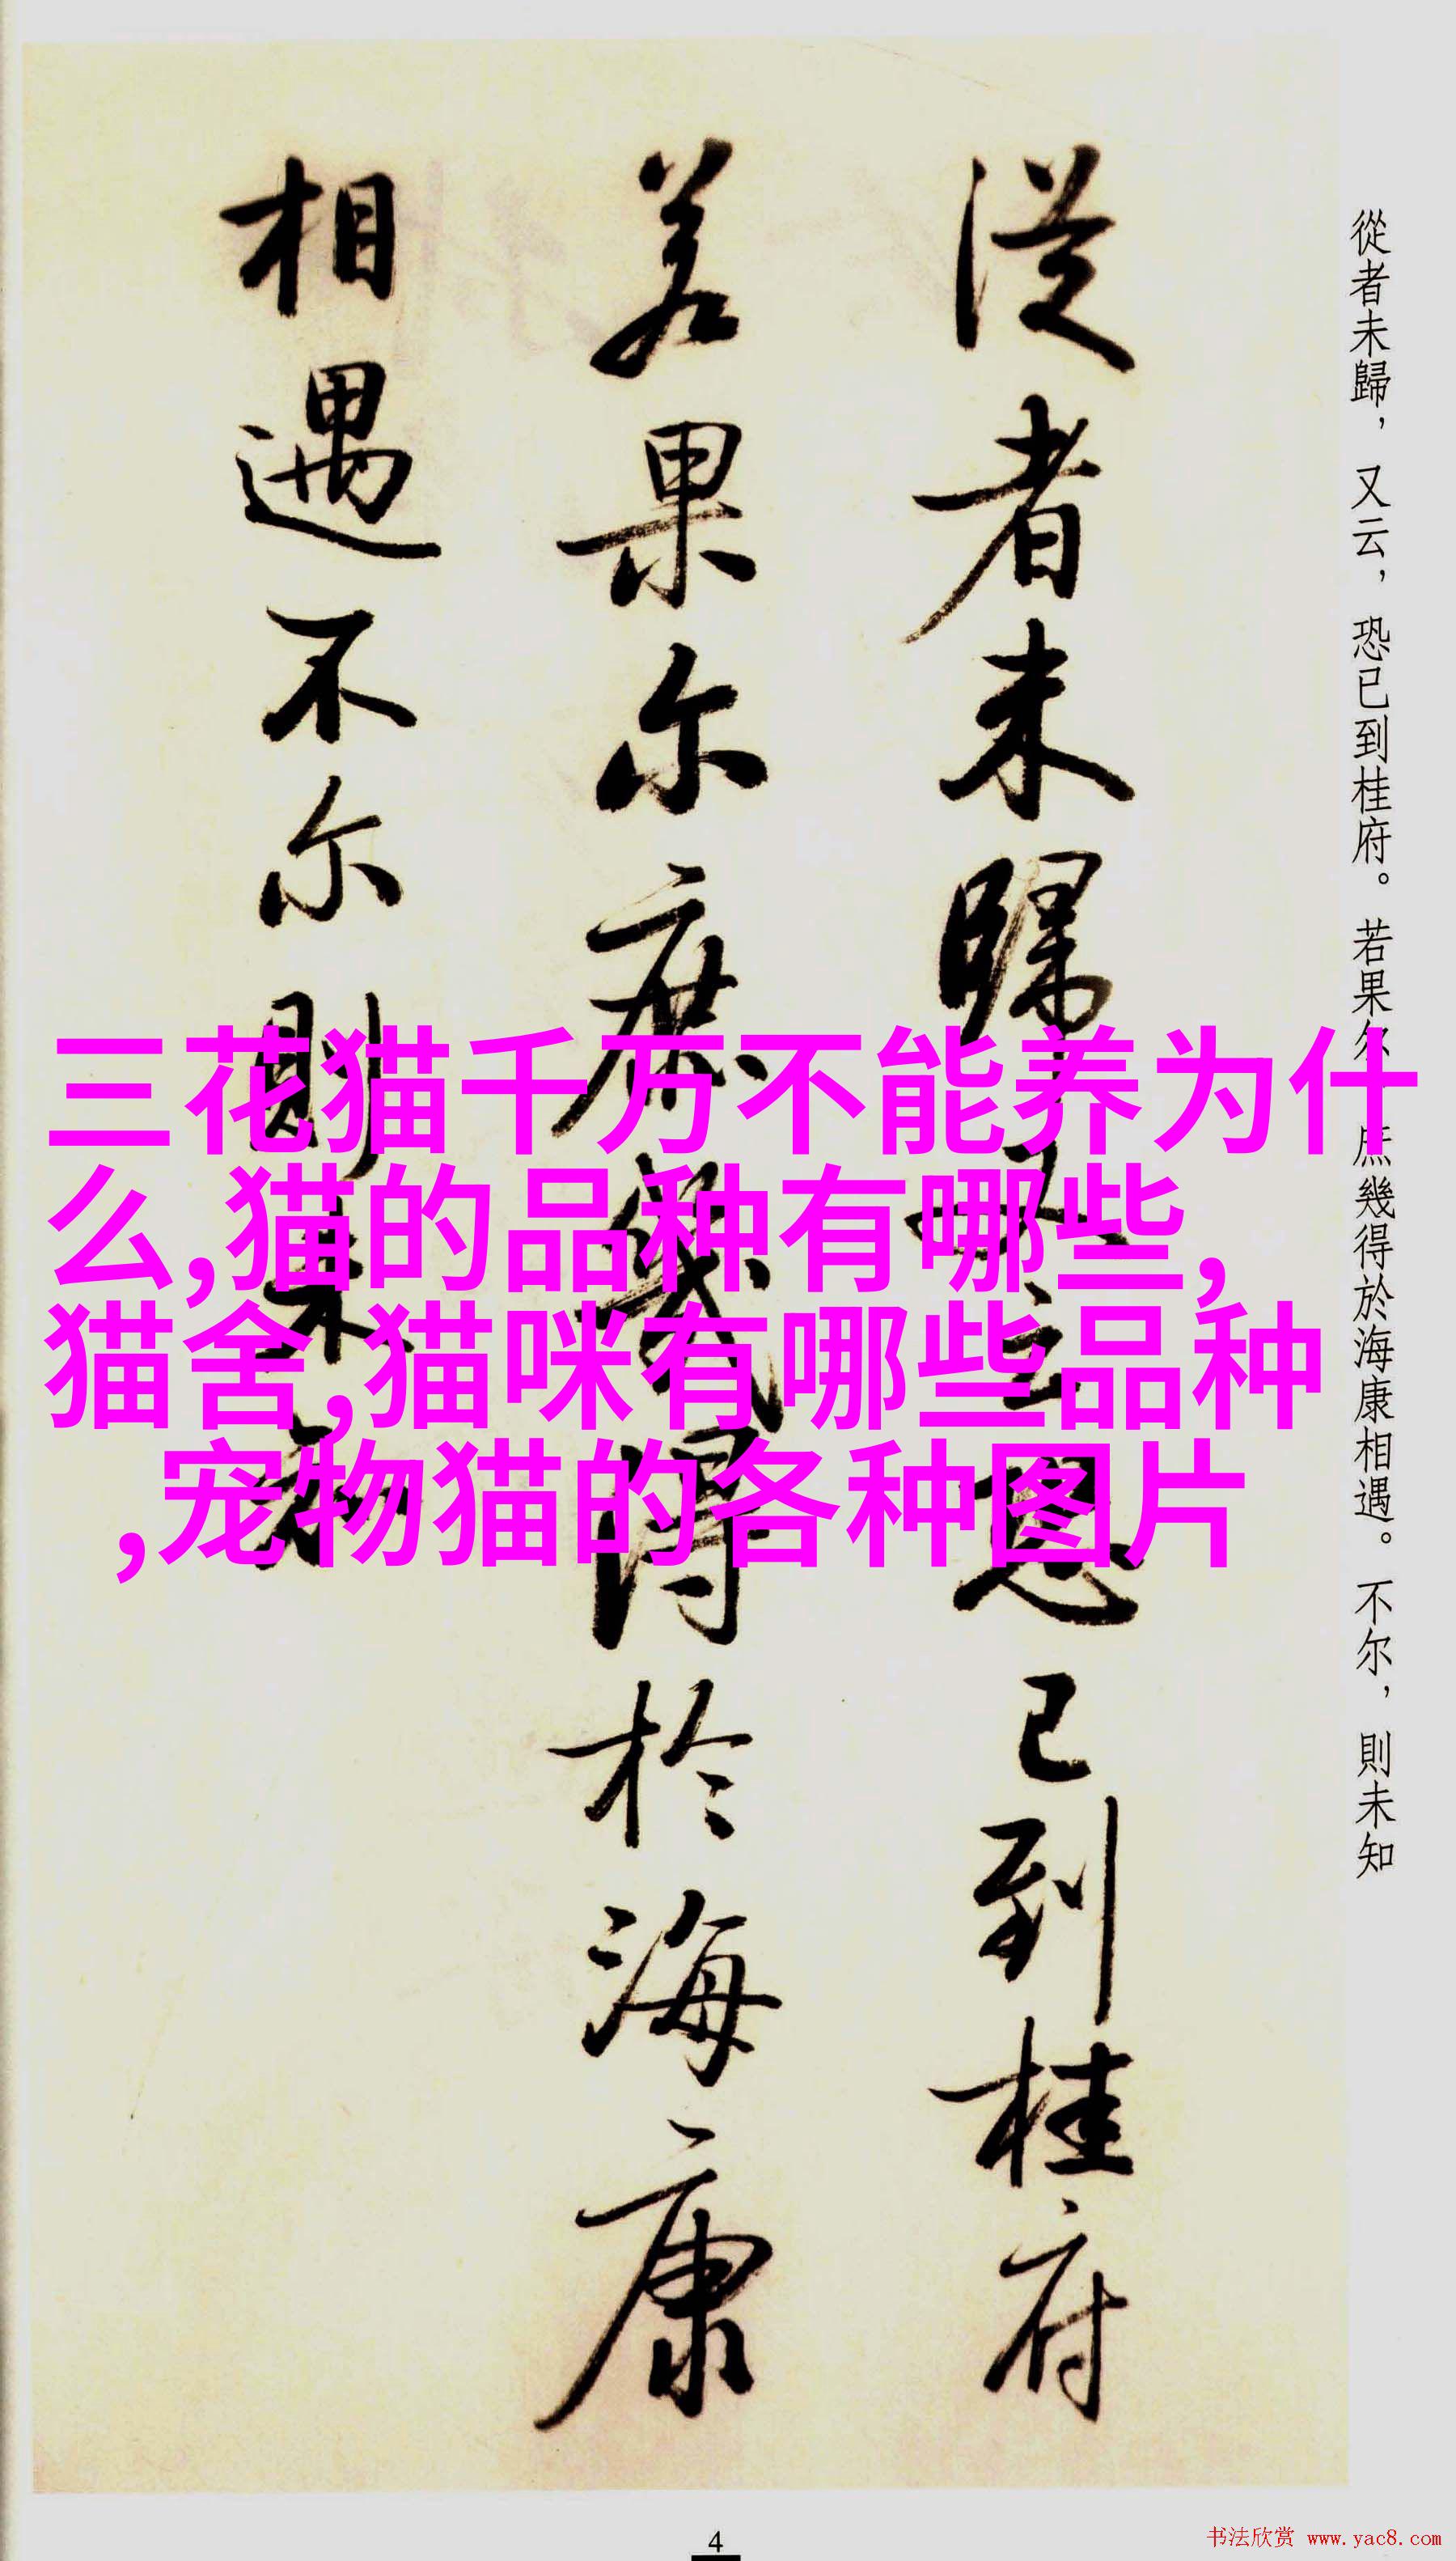 從者未歸，又云，恐已到桂府。若果尔，庶幾得於海康相遇。不尔，則未知
從者未歸又云恐已到桂府
若果尔庶幾得於海康
相遇不尔則未知
三花猫千万不能养为什
么,猫的品种有哪些,
猫舍,猫咪有哪些品种
,宠物猫的各种图片
4
书法欣赏 www.yac8.com